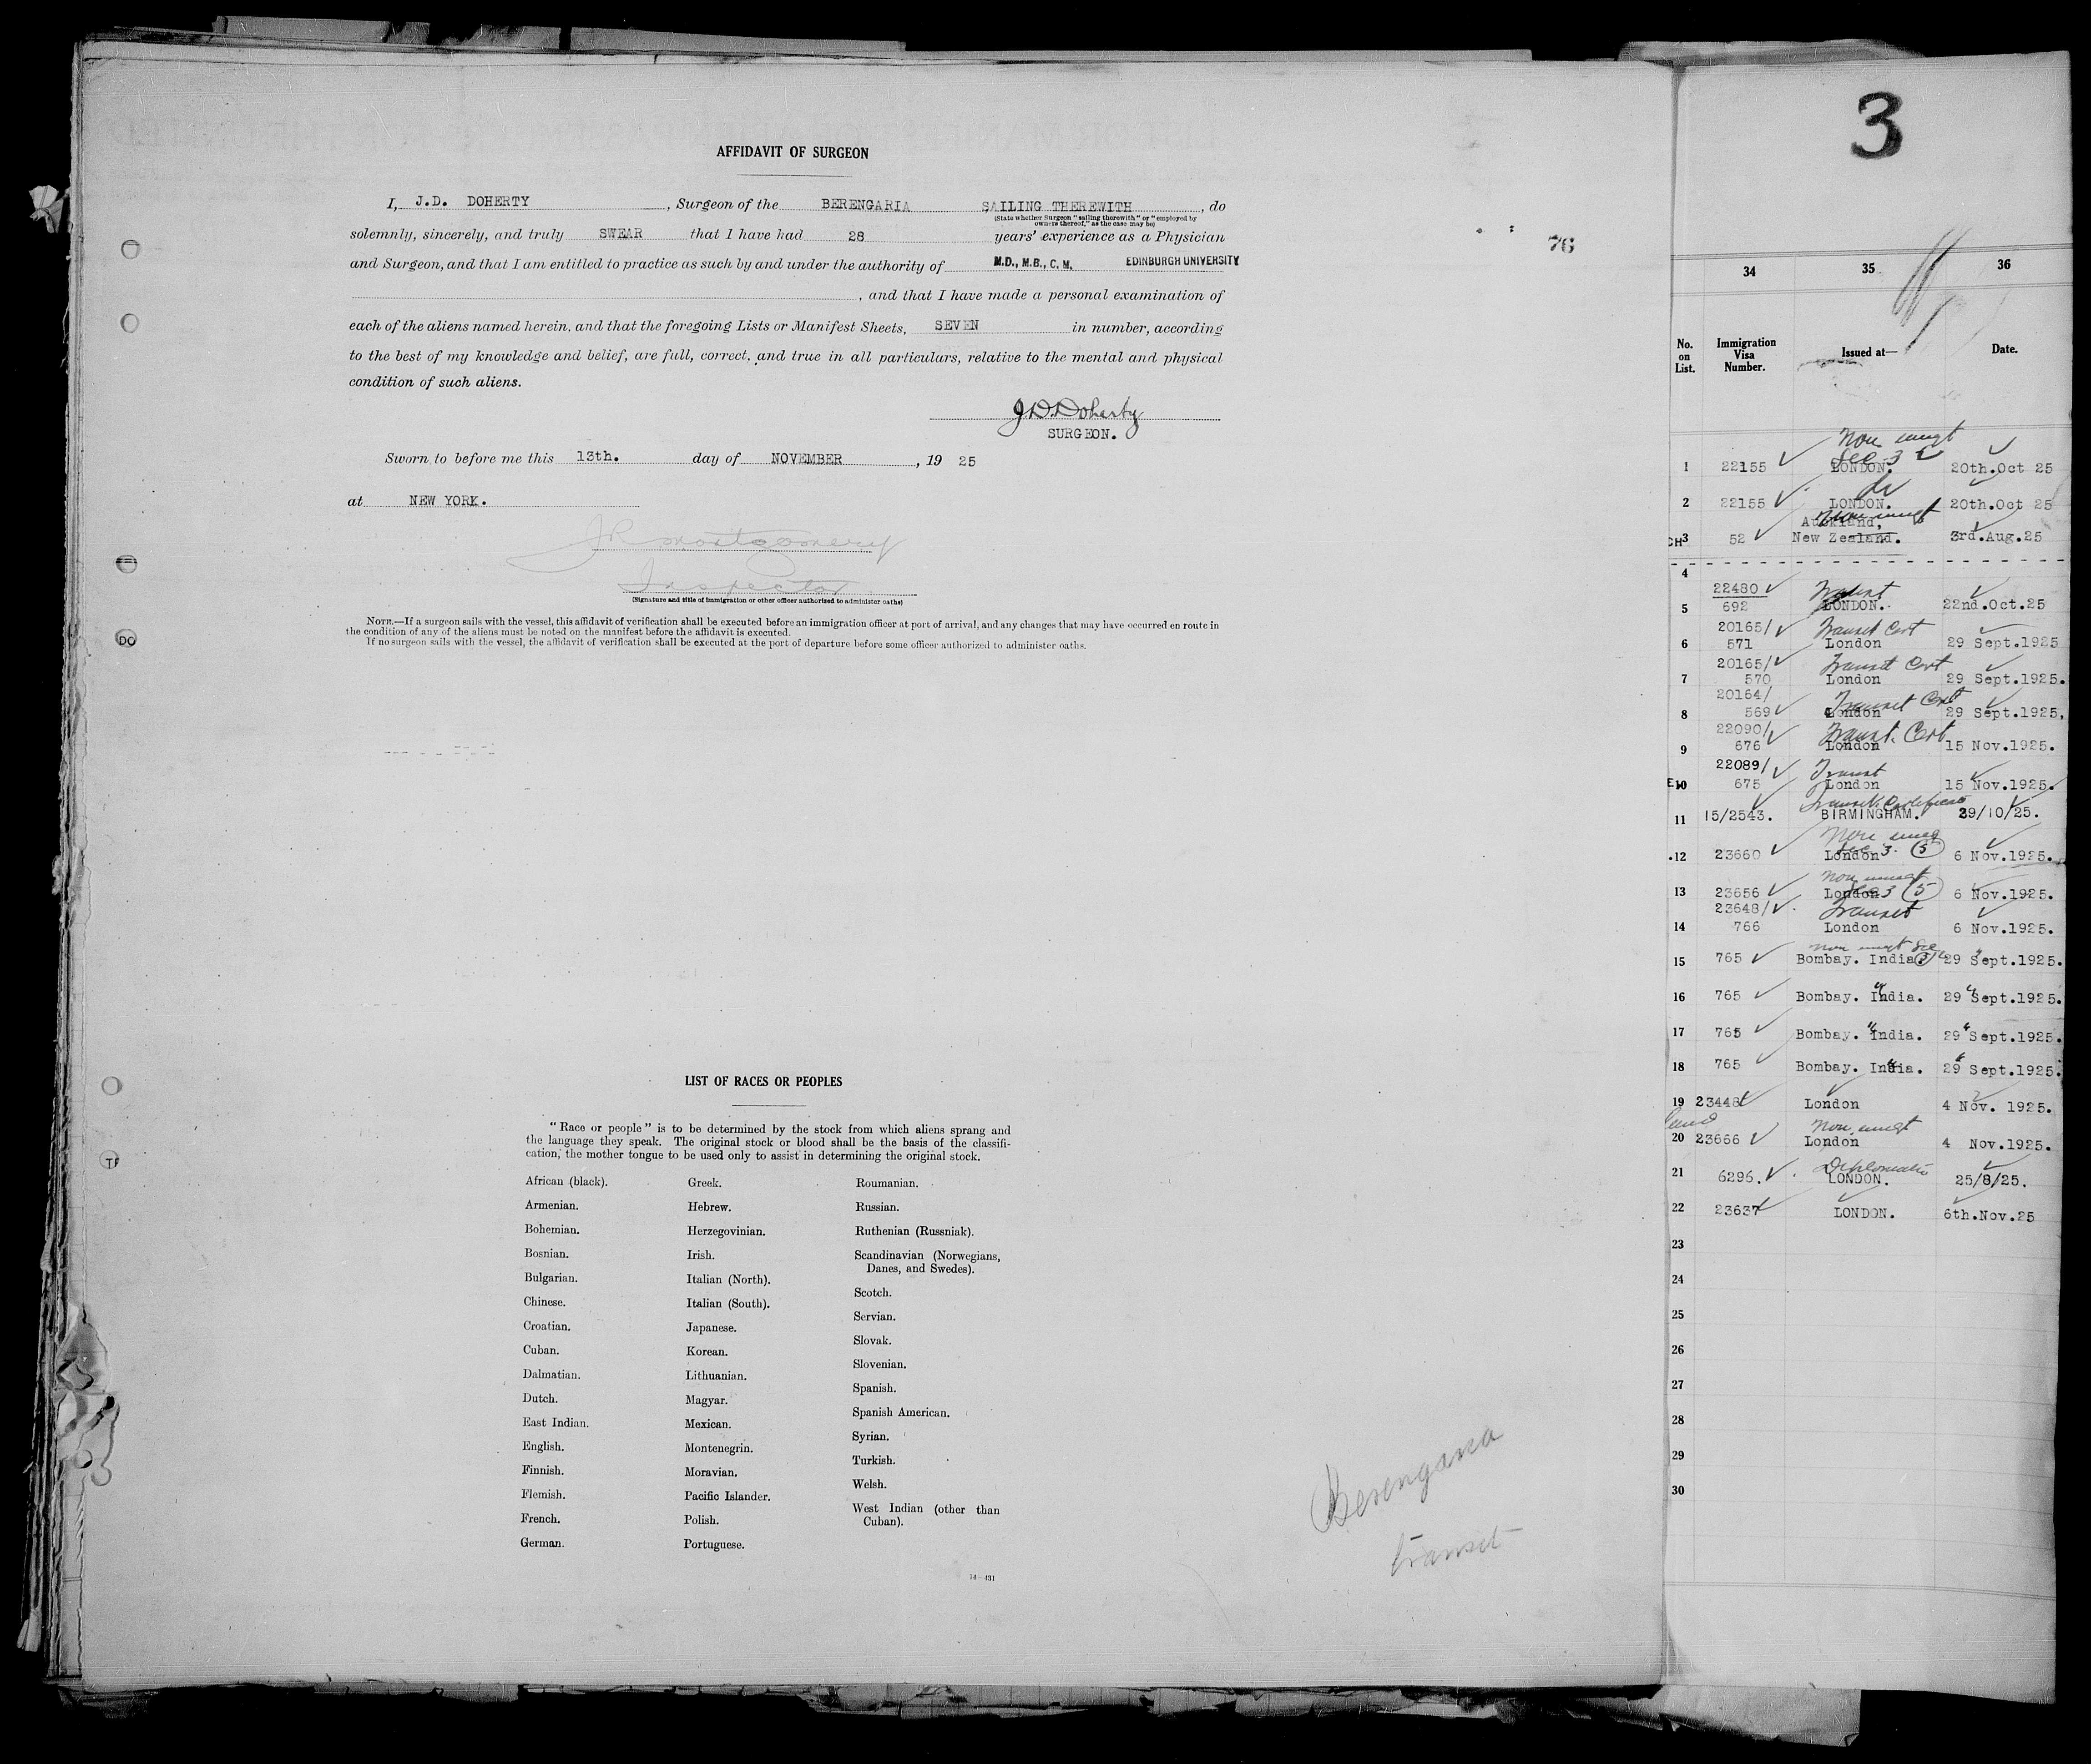 AFFIDAVIT OF SURGEON
I, J.D. DOHERTY, Surgeon of the BERENGARIA SAILING THEREWITH, do
(State whether Surgeon "sailing therewith" or "employed by
owners thereof," as the case may be)
solemnly, sincerely, and truly SWEAR that I have had 28 years' experience as a Physician
and Surgeon, and that I am entitled to practice as such by and under the authority of M.D., M.B., C.M. EDINBURGH UNIVERSITY
, and that I have made a personal examination of
each of the aliens named herein, and that the foregoing Lists or Manifest Sheets, SEVEN in number, according
to the best of my knowledge and belief, are full, correct, and true in all particulars, relative to the mental and physical
condition of such aliens.
J.D. Doherty
SURGEON.
Sworn to before me this 13th. day of NOVEMBER, 19 25
at NEW YORK.
J R Montgomery
Inspector
(Signature and title of immigration or other officer authorized to administer oaths)
NOTE.—If a surgeon sails with the vessel, this affidavit of verification shall be executed before an immigration officer at port of arrival, and any changes that may have occurred en route in
the condition of any of the aliens must be noted on the manifest before the affidavit is executed.
If no surgeon sails with the vessel, the affidavit of verification shall be executed at the port of departure before some officer authorized to administer oaths.
76
DO
LIST OF RACES OR PEOPLES
"Race or people" is to be determined by the stock from which aliens sprang and
the language they speak. The original stock or blood shall be the basis of the classifi-
cation, the mother tongue to be used only to assist in determining the original stock.
African (black).
Armenian.
Bohemian.
Bosnian.
Bulgarian.
Chinese.
Croatian.
Cuban.
Dalmatian.
Dutch.
East Indian.
English.
Finnish.
Flemish.
French.
German.
Greek.
Hebrew.
Herzegovinian.
Irish.
Italian (North).
Italian (South).
Japanese.
Korean.
Lithuanian.
Magyar.
Mexican.
Montenegrin.
Moravian.
Pacific Islander.
Polish.
Portuguese.
Roumanian.
Russian.
Ruthenian (Russniak).
Scandinavian (Norwegians,
Danes, and Swedes).
Scotch.
Servian.
Slovak.
Slovenian.
Spanish.
Spanish American.
Syrian.
Turkish.
Welsh.
West Indian (other than
Cuban).
14—431
Berengaria
transit
3
34 35 36
No. on List. Immigration Visa Number. Issued at— Date.
Non immgt
Sec 3
1 22155 LONDON. 20th.Oct 25
do
2 22155 LONDON. 20th.Oct 25
Non immgt
Auckland,
CH 3 52 New Zealand. 3rd.Aug.25
4
22480 Transit
5 692 LONDON. 22nd.Oct.25
20165/ Transit Cert
6 571 London 29 Sept.1925
20165/ Transit Cert
7 570 London 29 Sept.1925.
20164/ Transit Cert
8 569 London 29 Sept.1925,
22090/ Transit Cert
9 676 London 15 Nov.1925.
22089/ Transit
E 10 675 London 15 Nov.1925.
Transit Certificate
11 15/2543. BIRMINGHAM. 29/10/25.
Non immg
Sec 3 (5)
12 23660 London 6 Nov.1925.
Non immgt
Sec 3 (5)
13 23656 London 6 Nov.1925.
23648/ Transit
14 766 London 6 Nov.1925.
Non immgt Sec
15 765 Bombay. India. 29 Sept.1925.
16 765 Bombay. India. 29 Sept.1925.
17 765 Bombay. India. 29 Sept.1925.
18 765 Bombay. India. 29 Sept.1925.
19 23448 London 4 Nov. 1925.
Non immgt
20 23666 London 4 Nov.1925.
Diplomatic
21 6296. LONDON. 25/8/25.
22 23637 LONDON. 6th.Nov.25
23
24
25
26
27
28
29
30